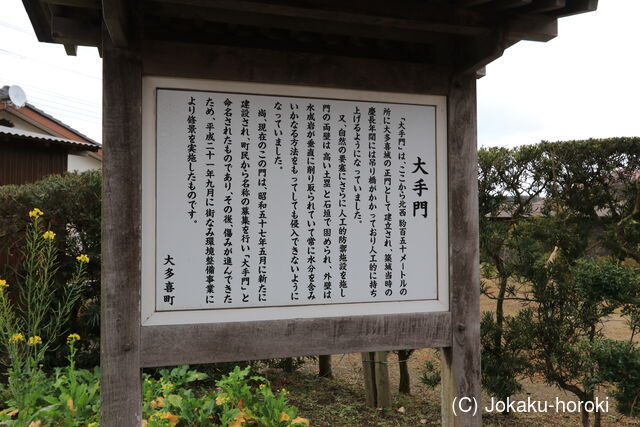 大手門
「大手門」は、ここから北西約百五十メートルの
所に大多喜城の正門として建立され、築城当時の
慶長年間には吊り橋がかかっており人工的に持ち
上げるようになっていました。
又、自然の要塞にさらに人工的防禦施設を施し
門の両壁は高い土塁と石垣で固められ、外壁は
水成岩が垂直に削り取られていて常に水分を含み
いかなる方法をもってしても侵入できないように
なっていました。
尚、現在のこの門は、昭和五十七年五月に新たに
建設され、町民から名称の募集を行い「大手門」と
命名されたものであり、その後、傷みが進んできた
ため、平成二十一年九月に街なみ環境整備事業に
より修景を実施したものです。
大多喜町
(C) Jokaku-horoki